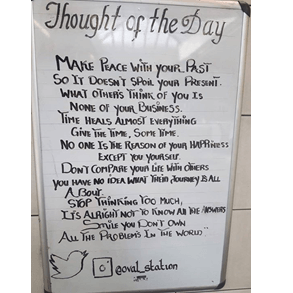 Thought of the Day
MAKE PEACE WITH YOUR PAST
SO IT DOESN'T SPOIL YOUR PRESENT.
WHAT OTHER'S THINK OF YOU IS
NONE OF YOUR BUSINESS.
TIME HEALS ALMOST EVERYTHING
GIVE THE TIME, SOME TIME.
NO ONE IS THE REASON OF YOUR HAPPINESS
EXCEPT YOU YOURSELF.
DON'T COMPARE YOUR LIFE WITH OTHERS
YOU HAVE NO IDEA WHAT THEIR JOURNEY IS ALL
ABOUT.
STOP THINKING TOO MUCH,
IT'S ALRIGHT NOT TO KNOW ALL THE ANSWERS
SMILE YOU DON'T OWN
ALL THE PROBLEM'S IN THE WORLD
@oval_station